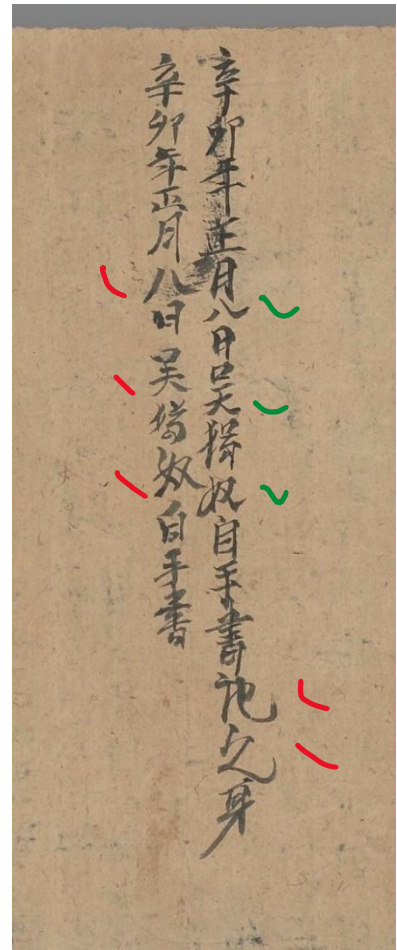 辛卯年正月八日吴猪奴自手書記之耳
辛卯年正月八日吴猪奴自手書